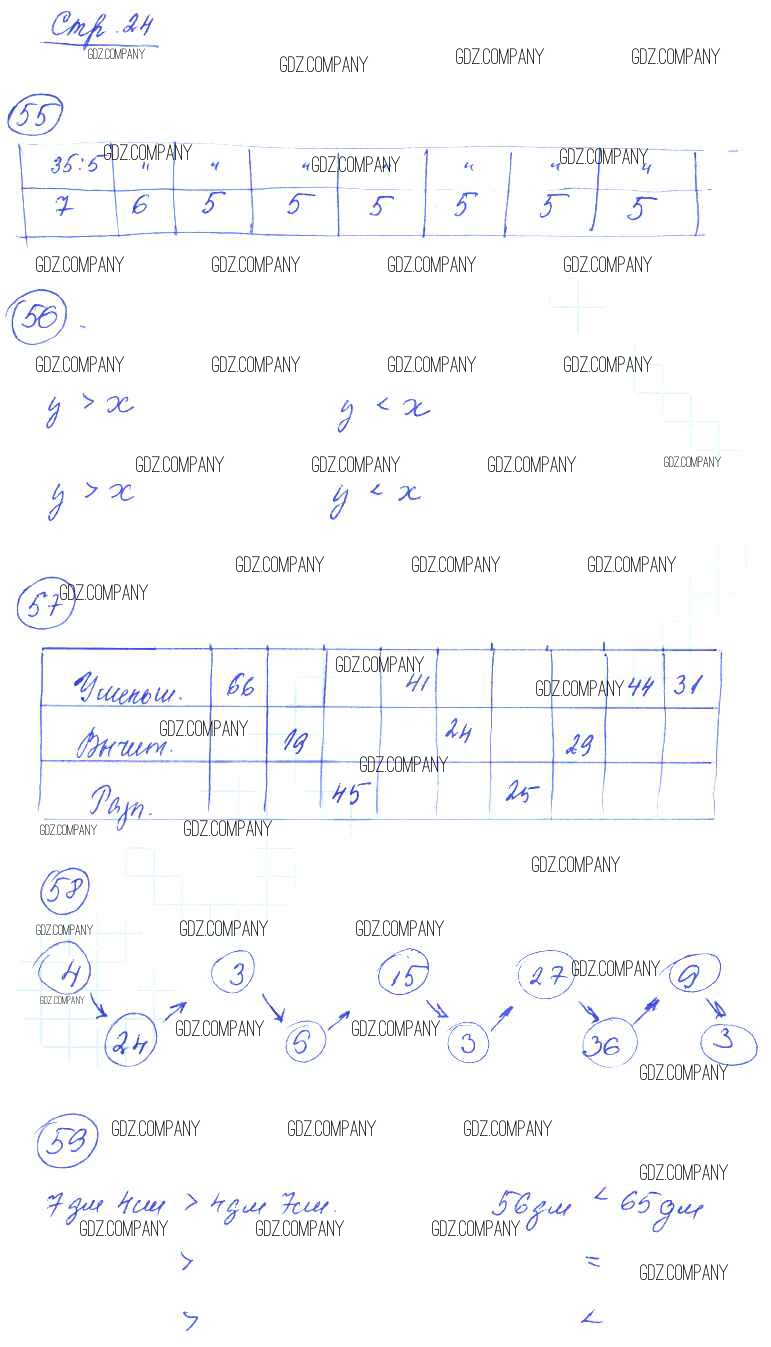 Стр. 24
GDZ.COMPANY GDZ.COMPANY GDZ.COMPANY GDZ.COMPANY
55
GDZ.COMPANY GDZ.COMPANY GDZ.COMPANY
35:5 " " " " " " "
7 6 5 5 5 5 5 5
GDZ.COMPANY GDZ.COMPANY GDZ.COMPANY GDZ.COMPANY
56
GDZ.COMPANY GDZ.COMPANY GDZ.COMPANY GDZ.COMPANY
y > x y < x
GDZ.COMPANY GDZ.COMPANY GDZ.COMPANY GDZ.COMPANY
y > x y < x
GDZ.COMPANY GDZ.COMPANY GDZ.COMPANY
57 GDZ.COMPANY
GDZ.COMPANY GDZ.COMPANY
Уменьш. 66 41 44 31
GDZ.COMPANY
Вычит. 19 24 29
GDZ.COMPANY
Разн. 45 25
GDZ.COMPANY GDZ.COMPANY
GDZ.COMPANY
58
GDZ.COMPANY GDZ.COMPANY GDZ.COMPANY
4 3 15 27 GDZ.COMPANY 9
GDZ.COMPANY
GDZ.COMPANY GDZ.COMPANY
24 5 3 36 3
GDZ.COMPANY
59 GDZ.COMPANY GDZ.COMPANY GDZ.COMPANY
GDZ.COMPANY
7 дм 4 см > 4 дм 7 см. 56 дм < 65 дм
GDZ.COMPANY GDZ.COMPANY GDZ.COMPANY
> =
GDZ.COMPANY
> <